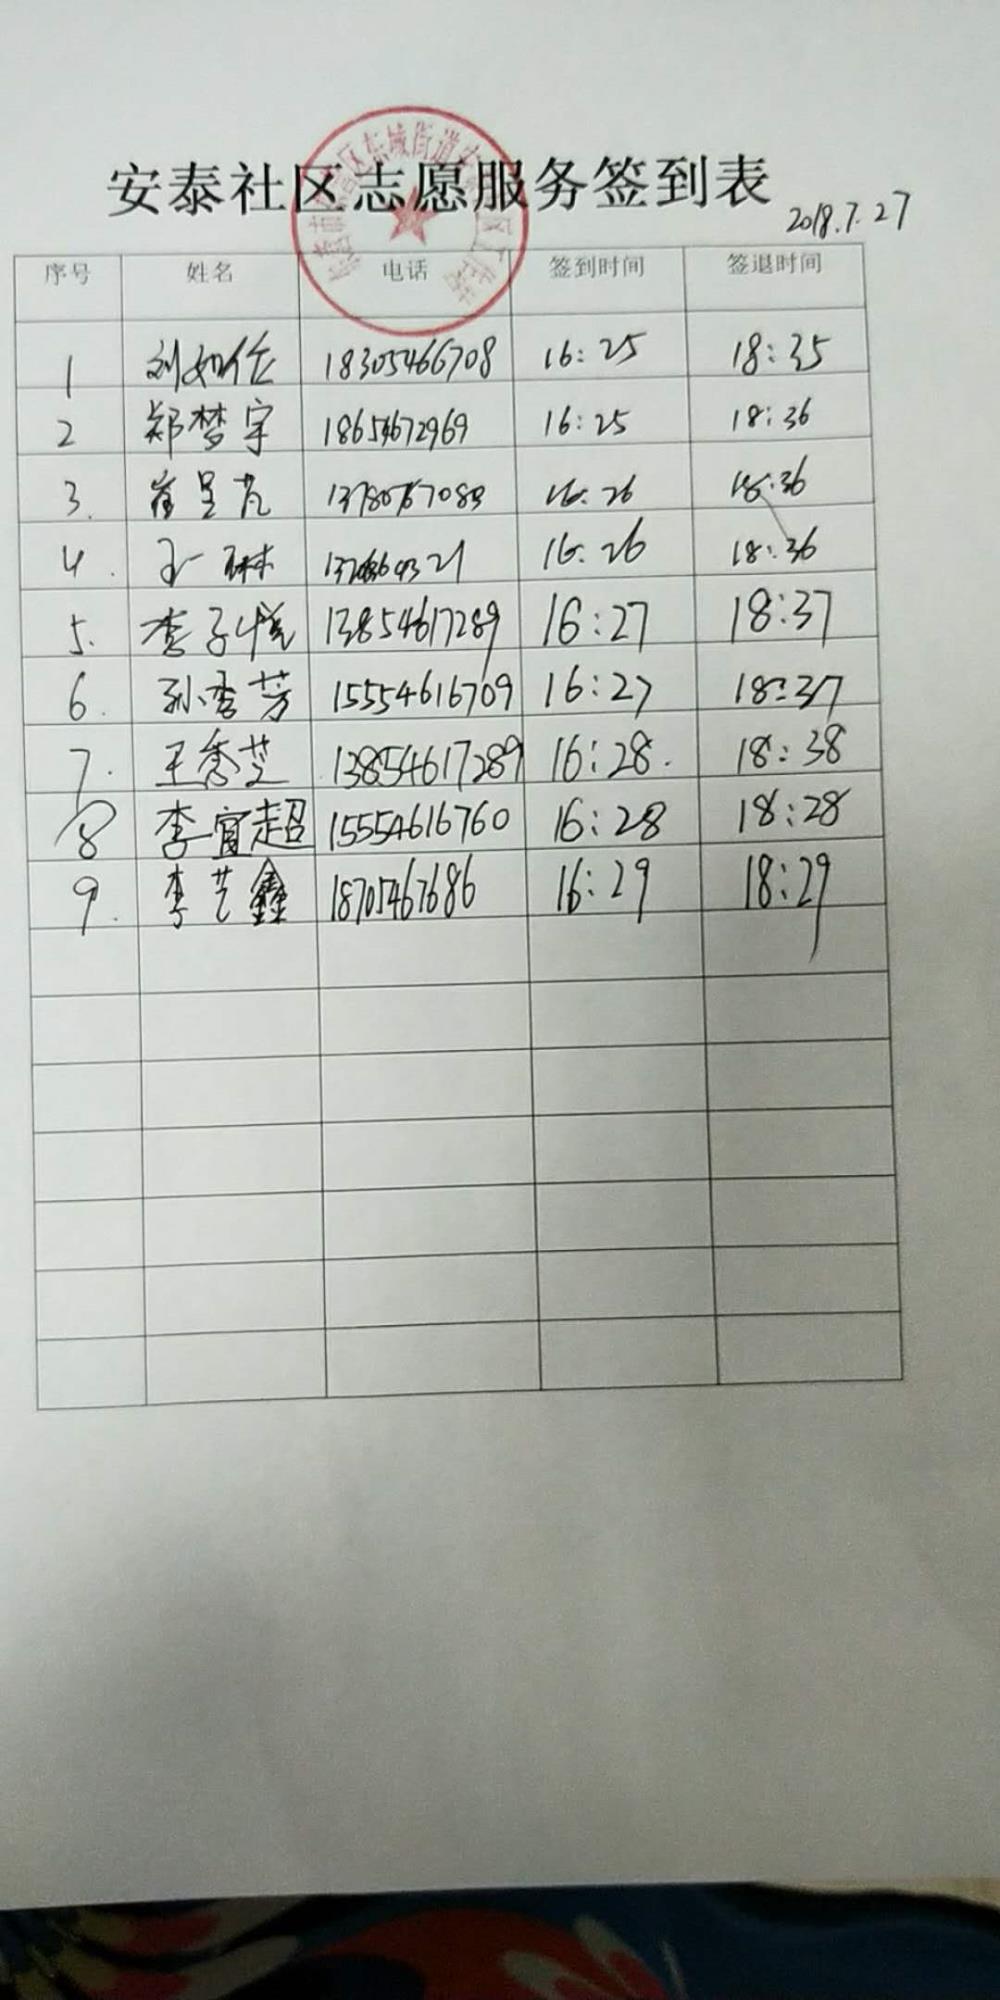 安泰社区志愿服务签到表
2018.7.27
序号 姓名 电话 签到时间 签退时间
1 刘如仕 18305466708 16:25 18:35
2 郑梦宇 18654672969 16:25 18:36
3. 崔呈芃 16:26 18:36
4. 琳 16:26 18:36
5. 李子悦 13854617289 16:27 18:37
6. 孙秀芳 15554616709 16:27 18:37
7. 王秀芝 13854617289 16:28. 18:38
8 李宜超 15554616760 16:28 18:28
9. 李艺鑫 18705467686 16:29 18:29